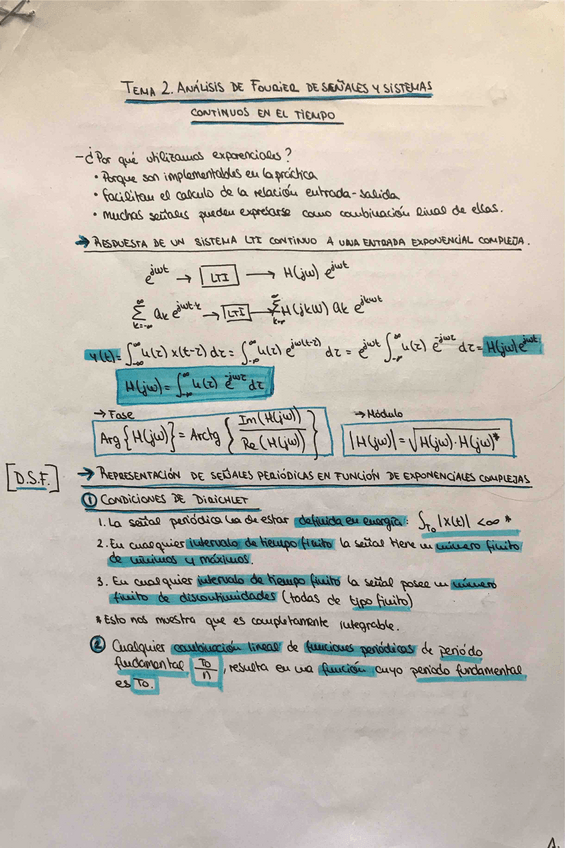 TEMA 2. ANÁLISIS DE FOURIER DE SEÑALES Y SISTEMAS
CONTINUOS EN EL TIEMPO
-¿Por qué utilizamos exponenciales?
• Porque son implementables en la práctica
• Facilitan el calculo de la relación entrada-salida
• Muchas señales pueden expresarse como combinación lineal de ellas.
→ RESPUESTA DE UN SISTEMA LTI CONTINUO A UNA ENTRADA EXPONENCIAL COMPLEJA.
e^{jωt} → [LTI] → H(jω) e^{jωt}
∑_{k=-∞}^{∞} a_k e^{jωt·k} → [LTI] → ∑_{k=-∞}^{∞} H(jkω) a_k e^{jkωt}
y(t) = ∫_{-∞}^{∞} h(τ) x(t-τ) dτ = ∫_{-∞}^{∞} h(τ) e^{jω(t-τ)} dτ = e^{jωt} ∫_{-∞}^{∞} h(τ) e^{-jωτ} dτ = H(jω) e^{jωt}
H(jω) = ∫_{-∞}^{∞} h(τ) e^{-jωτ} dτ
→ Fase
Arg{H(jω)} = Arctg { Im(H(jω)) / Re(H(jω)) }
→ Módulo
|H(jω)| = √(H(jω)·H(jω)*)
[D.S.F.]
→ REPRESENTACIÓN DE SEÑALES PERIÓDICAS EN FUNCIÓN DE EXPONENCIALES COMPLEJAS
① CONDICIONES DE DIRICHLET
1. La señal periódica ha de estar definida en energía: ∫_{T0} |x(t)| < ∞ *
2. En cualquier intervalo de tiempo finito la señal tiene un número finito
de mínimos y máximos.
3. En cualquier intervalo de tiempo finito la señal posee un número
finito de discontinuidades (todas de tipo finito)
* Esto nos muestra que es completamente integrable.
② Cualquier combinación lineal de funciones periódicas de periódo
fundamental T0/n, resulta en una función cuyo periodo fundamental
es T0.